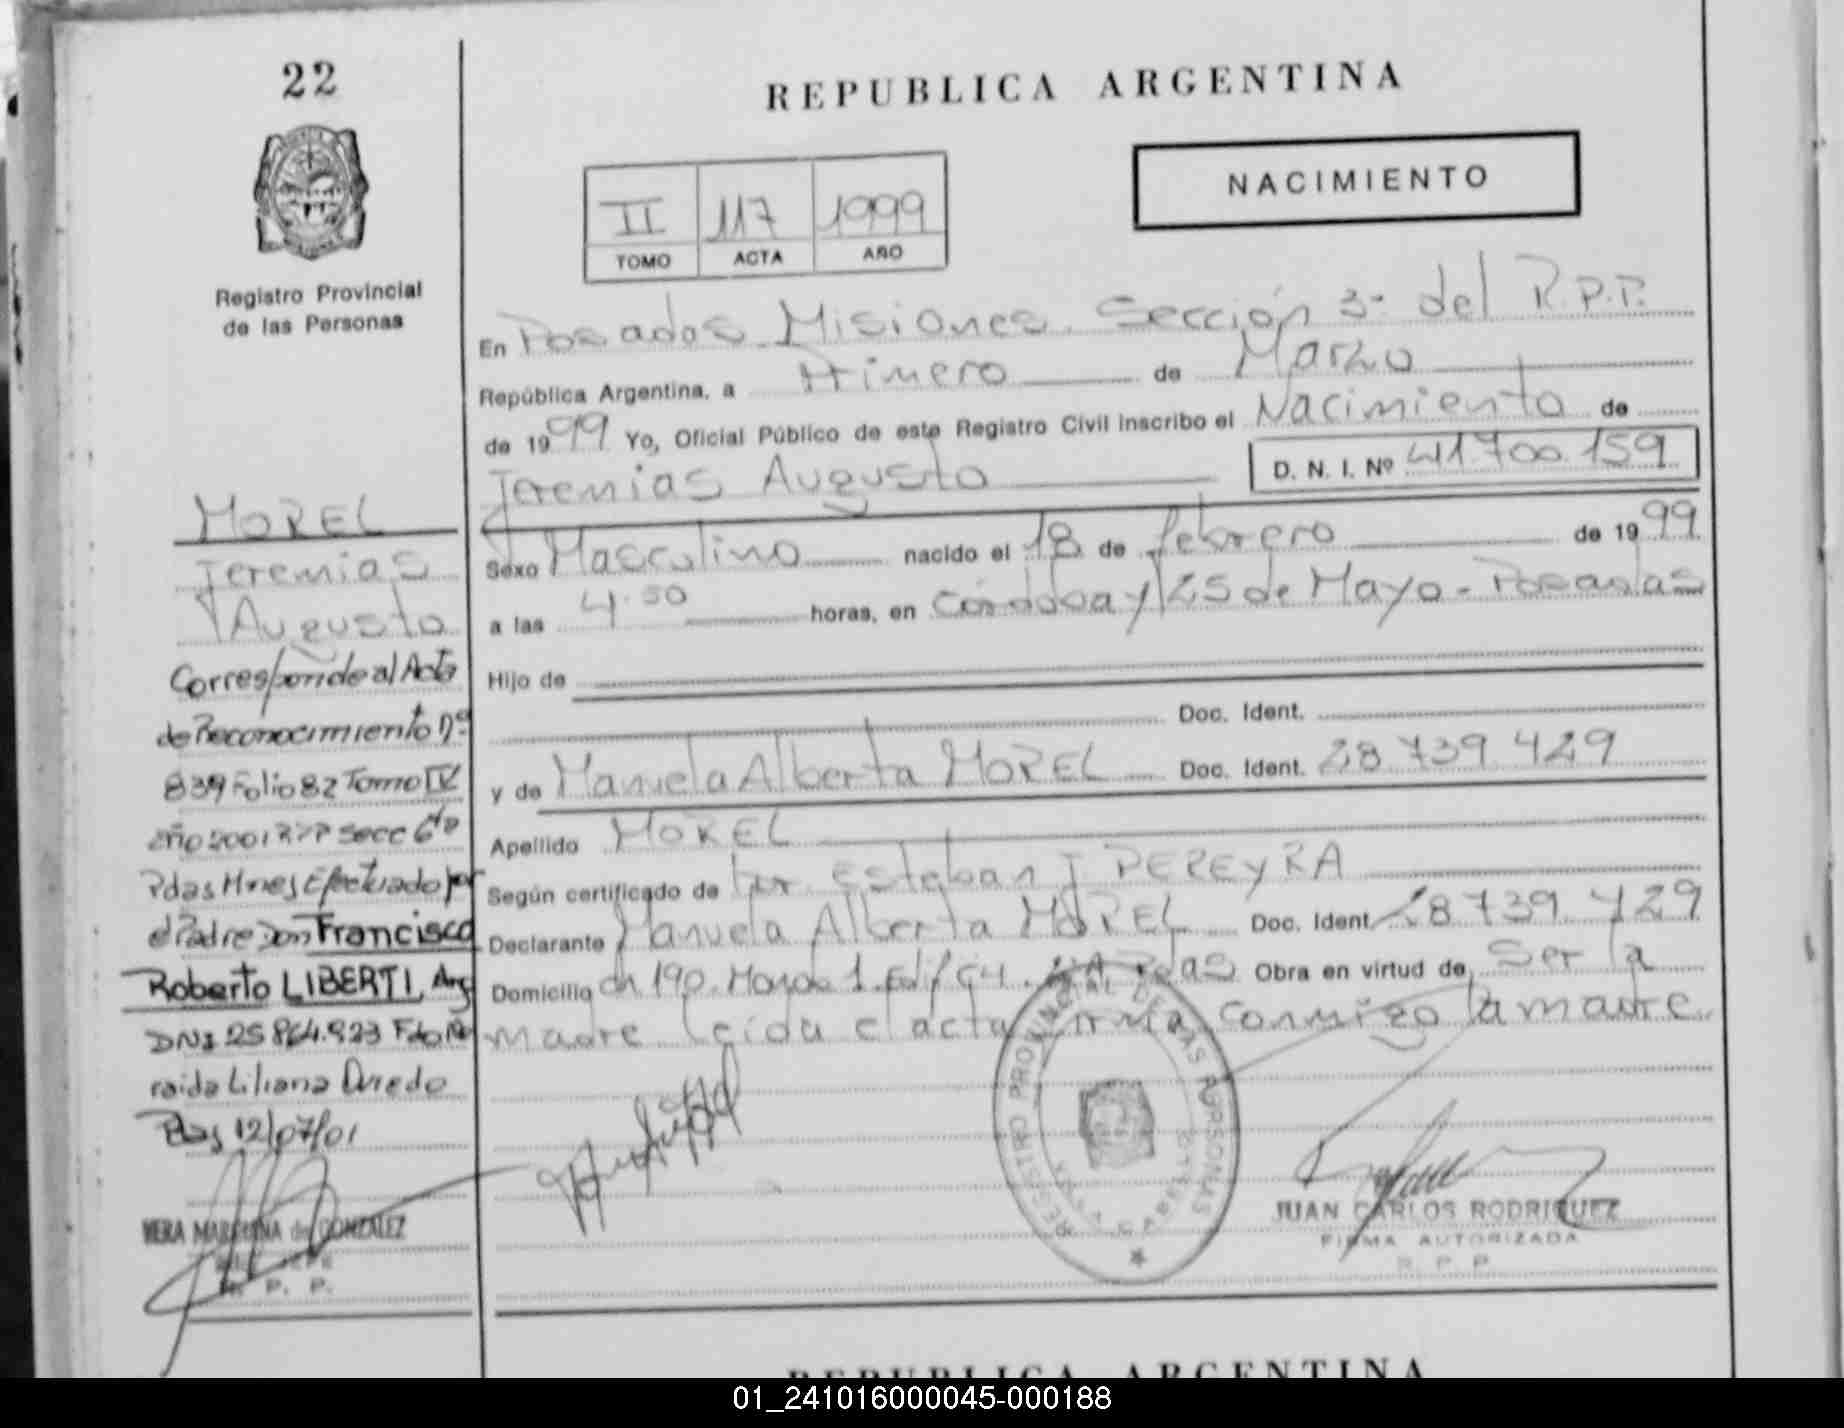 22
REPUBLICA ARGENTINA
NACIMIENTO
II 117 1999
TOMO ACTA AÑO
Registro Provincial
de las Personas
En Posadas Misiones. Sección 3ª del R.P.P.
República Argentina, a Primero de Marzo
de 1999 Yo, Oficial Público de este Registro Civil inscribo el Nacimiento de
Jeremias Augusto D. N. I. Nº 41.700.159
Sexo Masculino nacido el 18 de febrero de 1999
a las 4.50 horas, en Córdoba y 25 de Mayo - Posadas
Hijo de
Doc. Ident.
y de Manuela Alberta MOREL Doc. Ident. 28 739 429
Apellido MOREL
Según certificado de Dr. Esteban J PEREYRA
Declarante Manuela Alberta MOREL Doc. Ident 28 739 429
Domicilio ch 190. 1. Pdas Obra en virtud de Ser la
madre leida el acta firma conmigo la madre
MOREL
Jeremias
Augusto
Corresponde al Acta
de Reconocimiento nº
839 Folio 82 Tomo IV
año 2001 RPP Secc 6ta
Pdas Mnes Efectuado por
el Padre Don Francisco
Roberto LIBERTI, Arg
DNI 25 864.923 Fdo
raida Liliana Oviedo
Pdas 12/07/01
VERA de GONZALEZ
R. P. P.
REGISTRO PROVINCIAL DE LAS PERSONAS
JUAN CARLOS RODRIGUEZ
FIRMA AUTORIZADA
R. P. P.
REPUBLICA ARGENTINA
01_241016000045-000188